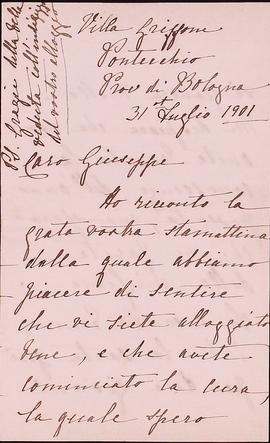 Villa Griffone
Pontecchio
Prov di Bologna
31st Luglio 1901
Caro Giuseppe
Ho ricevuto la
grata vostra stamattina
dalla quale abbiamo
piacere di sentire
che vi siete alloggiato
bene, e che avete
cominciato la cura,
la quale spero
PS. Grazie della
veduta coll'indirizzo
del vostro alloggio